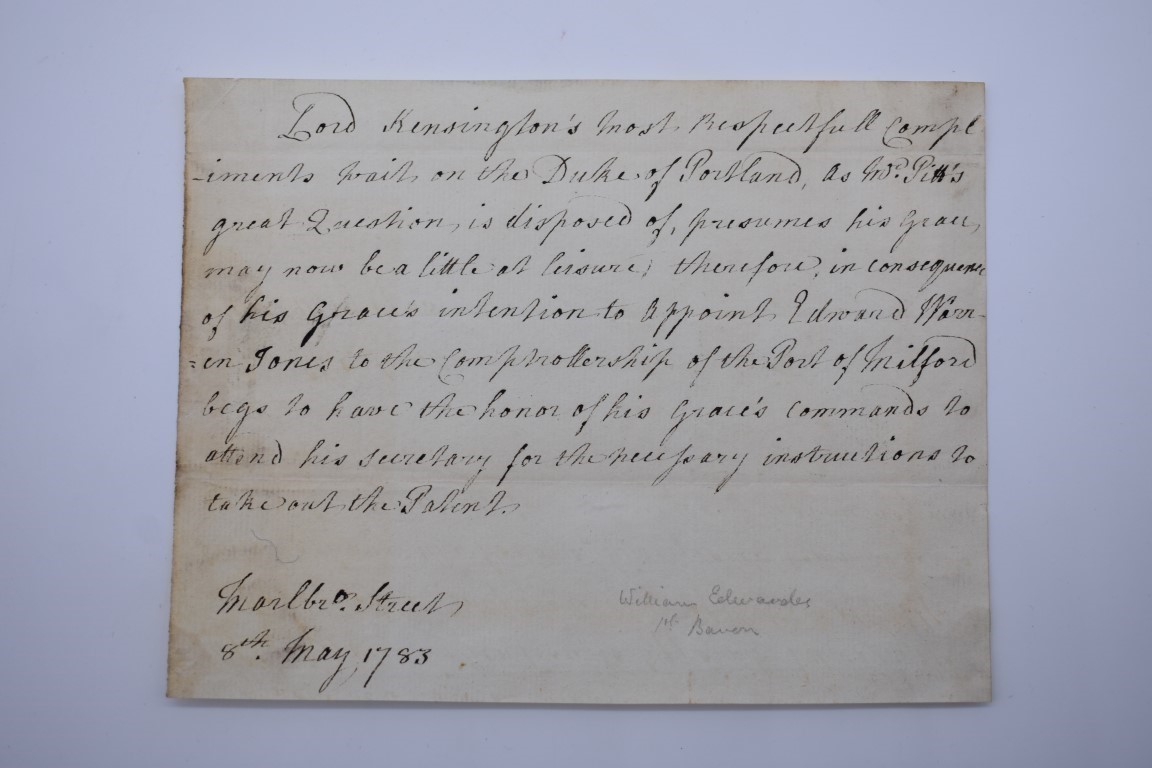 Lord Kensington's most Respectfull Compl
-iments wait on the Duke of Portland, as Mr. Pitt's
great Question, is disposed of, presumes his Grace,
may now be a little at leisure; therefore, in consequence
of his Grace's intention to Appoint Edward Warr-
=en Jones to the Comptrollership of the Port of Milford
begs to have the honor of his Grace's Commands to
attend his secretary for the necessary instructions to
take out the Patent.
Marlbro. Street,
8th. May, 1783
William Edwardes
1st Baron